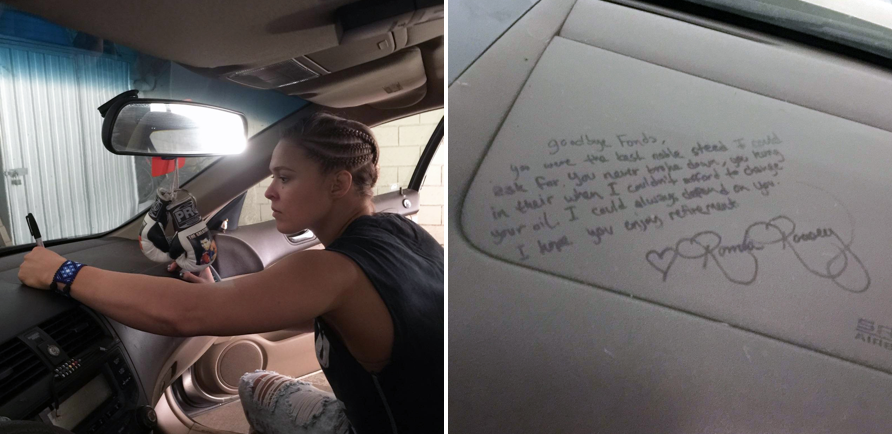 PRO
goodbye Fonda,
you were the best noble steed I could
ask for. you never broke down, you hung
in their when I couldn't afford to change
your oil. I could always depend on you.
I hope you enjoy retirement
♡ Ronda Rousey